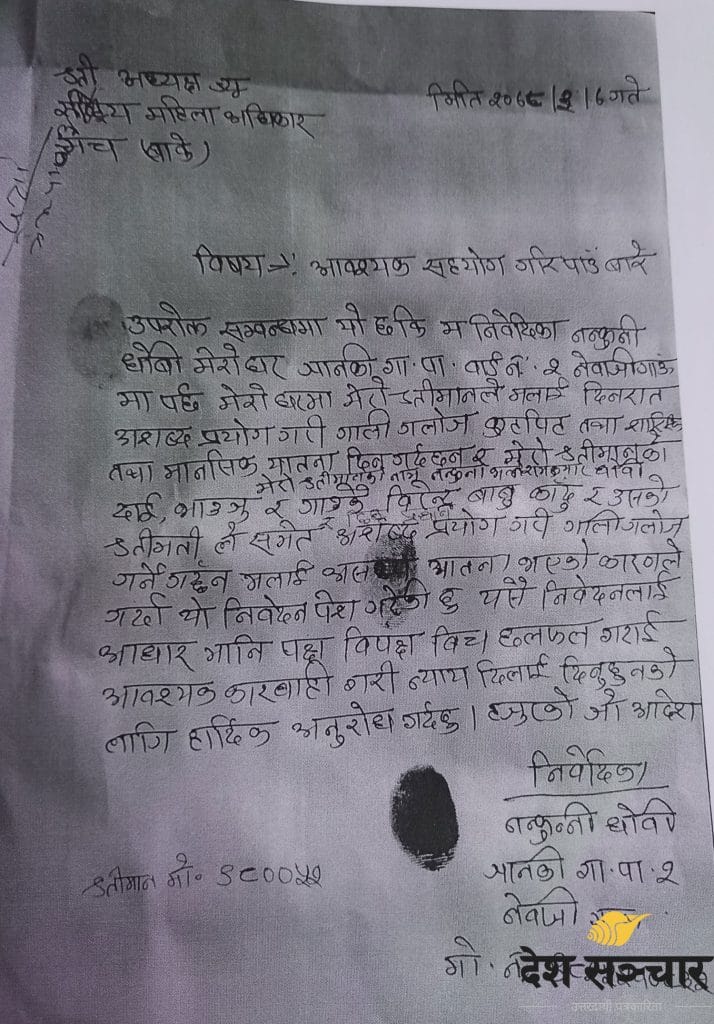 श्री अध्यक्ष ज्यू
महिला अधिकार
मंच (बाके)
मिति २०७८ | २ | ७ गते
विषय → आवश्यक सहयोग गरि पाउँ बारे
उपरोक्त सम्वन्धमा यो छ कि म निवेदिका नन्कुनी
धोबी मेरो घर जानकी गा. पा. वार्ड नं. २ नेवाजीगाऊ
मा पर्छ मेरो घरमा मेरो श्रीमानले मलाई दिनरात
अशब्द प्रयोग गरी गाली गलोज कुटपिट तथा
तथा मानसिक यातना दिनु गर्दछन र मेरो श्रीमानका
मेरो श्रीमानको नाम नन्कुना
दाई, भाउजु र गाउँके विरेन्द्र बाबु कादु र उसको
श्रीमती ले समेत अशब्द प्रयोग गरी गाली गलोज
गर्ने गर्दछन मलाई यातना भएको कारणले
गर्दा यो निवेदन पेश गर्दैछु यसै निवेदनलाई
आधार मानि पक्ष विपक्ष विच छलफल गराई
आवश्यक कारबाही गरी न्याय दिलाई दिनुहुनको
लागि हार्दिक अनुरोध गर्दछु । हजुरको जो आदेश
निवेदिका
नन्कुन्नी धोवी
जानकी गा. पा. २
नेवाजी
श्रीमान मो०
मो.
देश सञ्चार
उत्तरदायी पत्रकारिता